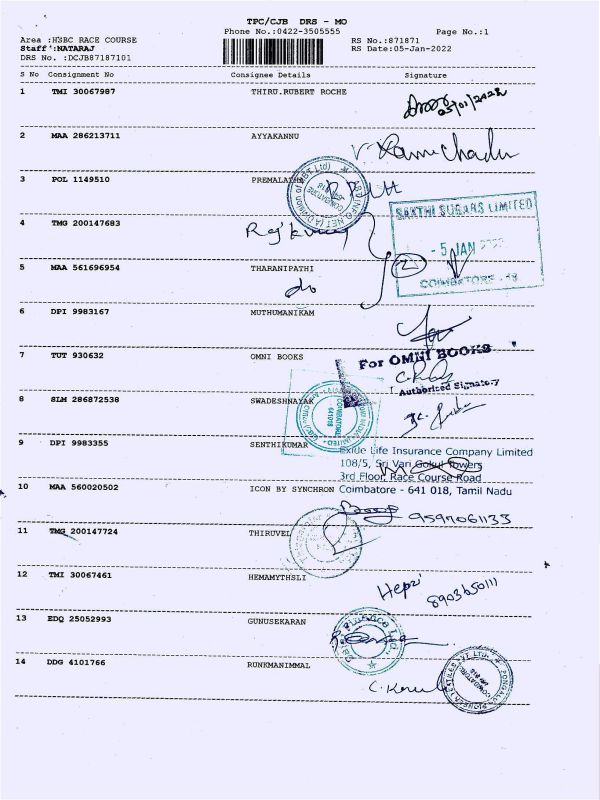 TPC/CJB DRS - MO
Phone No.:0422-3505555 Page No.:1
Area :HSBC RACE COURSE RS No.:871871
Staff :NATARAJ RS Date:05-Jan-2022
DRS No. :DCJB87187101
S No Consignment No Consignee Details Signature
1 TMI 30067987 THIRU.RUBERT ROCHE
05/01/2022
2 MAA 286213711 AYYAKANNU
V. Ramachadu
3 POL 1149510 PREMALATHA
SAKTHI SUGARS LIMITED
4 TMG 200147683
Rajkumar
- 5 JAN 2022
2
5 MAA 561696954 THARANIPATHI
COIMBATORE - 18
do
6 DPI 9983167 MUTHUMANIKAM
7 TUT 930632 OMNI BOOKS
For OMNI BOOKS
Authorised Signatory
8 SLM 286872538 SWADESHNAYAK
COIMBATORE
641018
9 DPI 9983355 SENTHIKUMAR
Exide Life Insurance Company Limited
108/5, Sri Vari Gokul Towers
3rd Floor, Race Course Road
10 MAA 560020502 ICON BY SYNCHRON Coimbatore - 641 018, Tamil Nadu
9597061133
11 TMG 200147724 THIRUVEL
12 TMI 30067461 HEMAMYTHSLI
Hepzi
8903650111
13 EDQ 25052993 GUNUSEKARAN
14 DDG 4101766 RUNKMANIMMAL